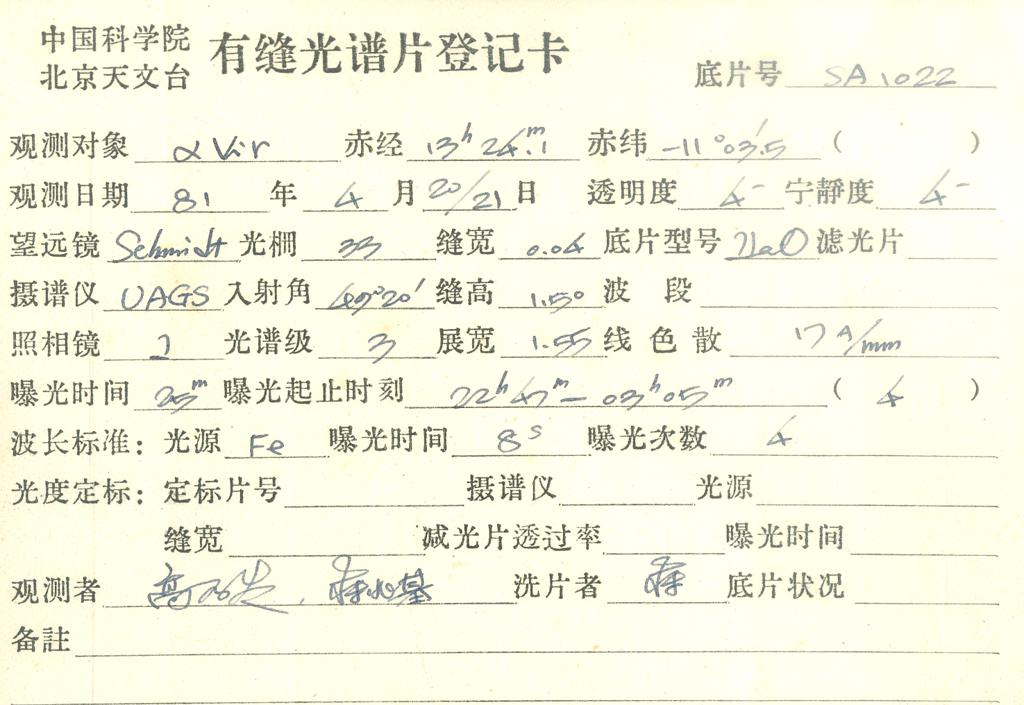 中国科学院
北京天文台
有缝光谱片登记卡
底片号 SA1022
观测对象 α Vir 赤经 13h 24m.1 赤纬 -11°03'.5 ( )
观测日期 81 年 4 月 20/21 日 透明度 4- 宁静度 4-
望远镜 Schmidt 光栅 33 缝宽 0.04 底片型号 IIaO 滤光片
摄谱仪 UAGS 入射角 49°20' 缝高 1.50 波段
照相镜 1 光谱级 3 展宽 1.55 线色散 17 A/mm
曝光时间 25m 曝光起止时刻 22h47m — 03h05m ( 4 )
波长标准: 光源 Fe 曝光时间 8s 曝光次数 4
光度定标: 定标片号 摄谱仪 光源
缝宽 减光片透过率 曝光时间
观测者 洗片者 底片状况
备註